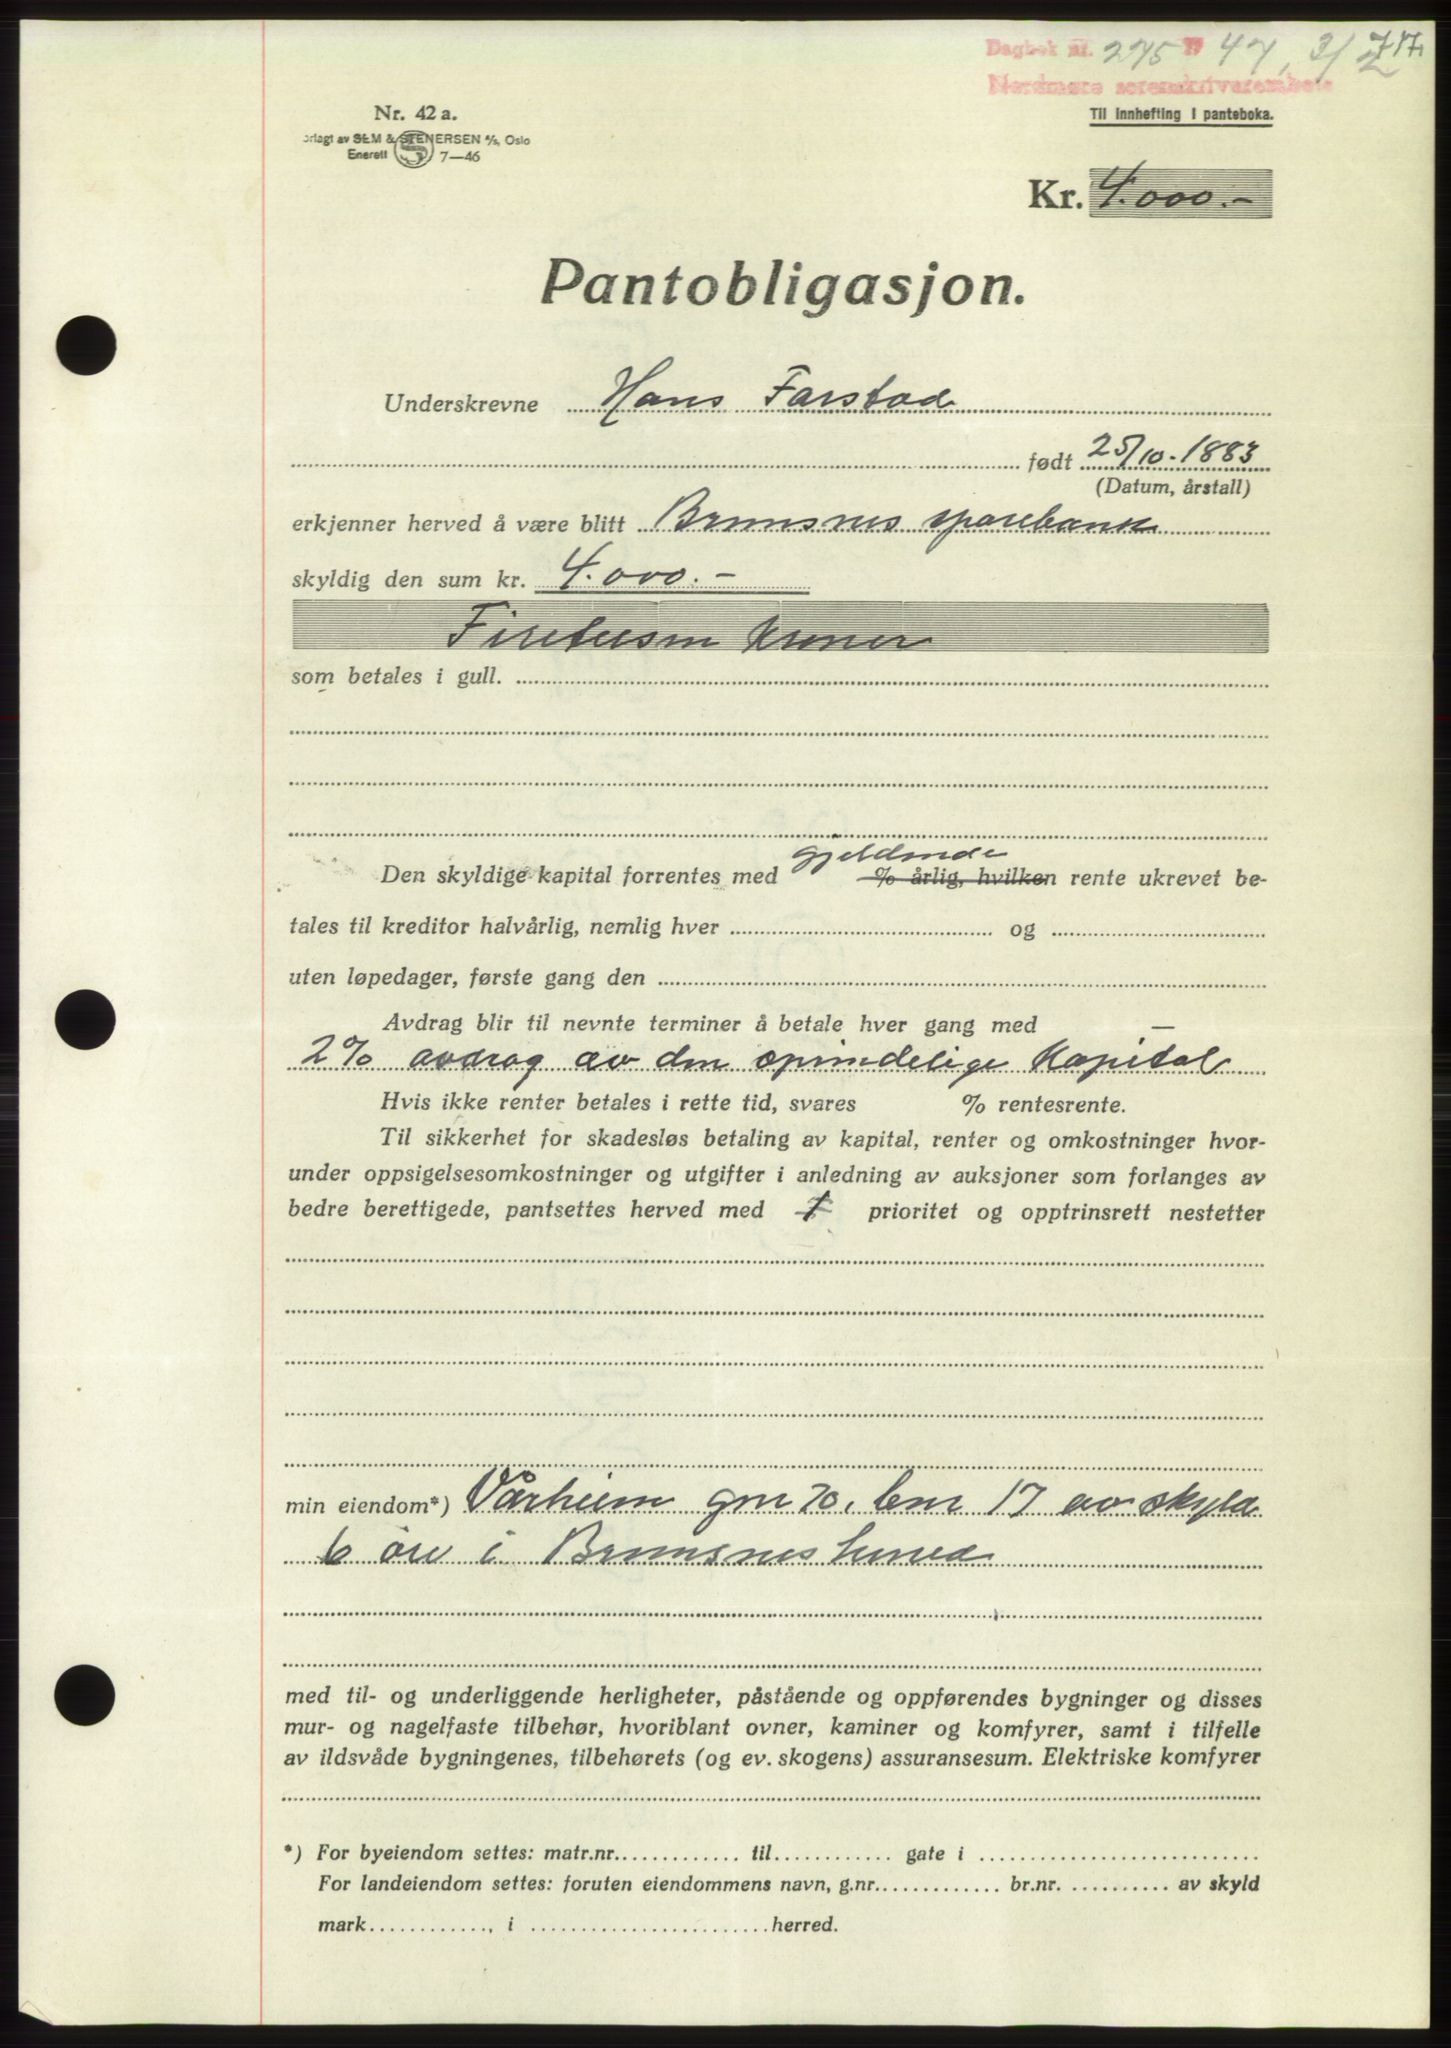 Dagbok nr. 275 19 47, 3/2
717.
Nordmøre sorenskriverembete
Nr. 42 a.
Til innhefting i panteboka.
orlagt av SEM & STENERSEN A/S, Oslo
Enerett 7—46
Kr. 4.000.-
Pantobligasjon.
Underskrevne Hans Farstad
født 25/10-1883
(Datum, årstall)
erkjenner herved å være blitt Bremsnes sparebank
skyldig den sum kr. 4.000.-
Firetusen kroner
som betales i gull.
gjeldende
Den skyldige kapital forrentes med % årlig, hvilken rente ukrevet be-
tales til kreditor halvårlig, nemlig hver og
uten løpedager, første gang den
Avdrag blir til nevnte terminer å betale hver gang med —
2% avdrag av den oprindelige kapital
Hvis ikke renter betales i rette tid, svares % rentesrente.
Til sikkerhet for skadesløs betaling av kapital, renter og omkostninger hvor-
under oppsigelsesomkostninger og utgifter i anledning av auksjoner som forlanges av
bedre berettigede, pantsettes herved med 1 prioritet og opptrinsrett nestetter
min eiendom*) Vårheim gnr 70, bnr 17 av skyld
6 øre i Bremsnes herred
med til- og underliggende herligheter, påstående og oppførendes bygninger og disses
mur- og nagelfaste tilbehør, hvoriblant ovner, kaminer og komfyrer, samt i tilfelle
av ildsvåde bygningenes, tilbehørets (og ev. skogens) assuransesum. Elektriske komfyrer
*) For byeiendom settes: matr.nr. til gate i
For landeiendom settes: foruten eiendommens navn, g.nr. br.nr. av skyld
mark , i herred.